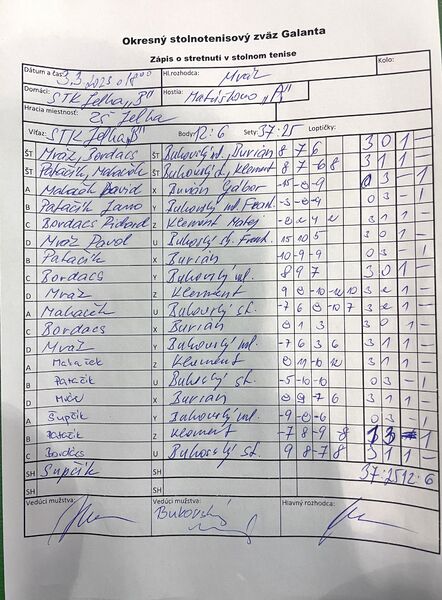 Okresný stolnotenisový zväz Galanta
Zápis o stretnutí v stolnom tenise
Dátum a čas: 3.3.2023 o 18:00 Hl.rozhodca: Mráz Kolo:
Domáci: STK Jelka „B" Hostia: Matúškovo „A"
Hracia miestnosť: ZŠ Jelka
Víťaz: STK Jelka „B" Body: 12:6 Sety: 37:25 Loptičky:
ŠT Mráz, Bordács ŠT Bukovský ml., Burián 8 7 6 3 0 1 -
ŠT Patačik, Maťaček ŠT Bukovský st., Klement 8 7 -6 8 3 1 1 -
A Maťaček Dávid X Burián Gábor 0 3 - 1
B Patačik Jano Y Bukovský ml. 0 3 - 1
C Bordacs Richard Z Klement Matej 3 1 1 -
D Mráz Pavol U Bukovský st. 15 10 5 3 0 1 -
B Patačik X Burián 10 -9 -9 0 3 - 1
C Bordacs Y Bukovský ml. 8 9 7 3 0 1 -
D Mráz Z Klement 3 2 1 -
A Maťaček U Bukovský st. 3 2 1 -
C Bordacs X Burián 3 0 1 -
D Mráz Y Bukovský ml. -7 6 3 6 3 1 1 -
A Maťaček Z Klement 3 1 1 -
B Patačik U Bukovský st. -5 -10 -10 0 3 - 1
D Mráz X Burián 3 1 1 -
A Supčik Y Bukovský ml. 0 3 - 1
B Patačik Z Klement -7 8 -9 8 1
C Bordács U Bukovský st. 9 8 -7 8 3 1 1 -
SH Supčik SH 37:25 12:6
SH SH
Vedúci mužstva: Vedúci mužstva: Hlavný rozhodca:
Bukovský